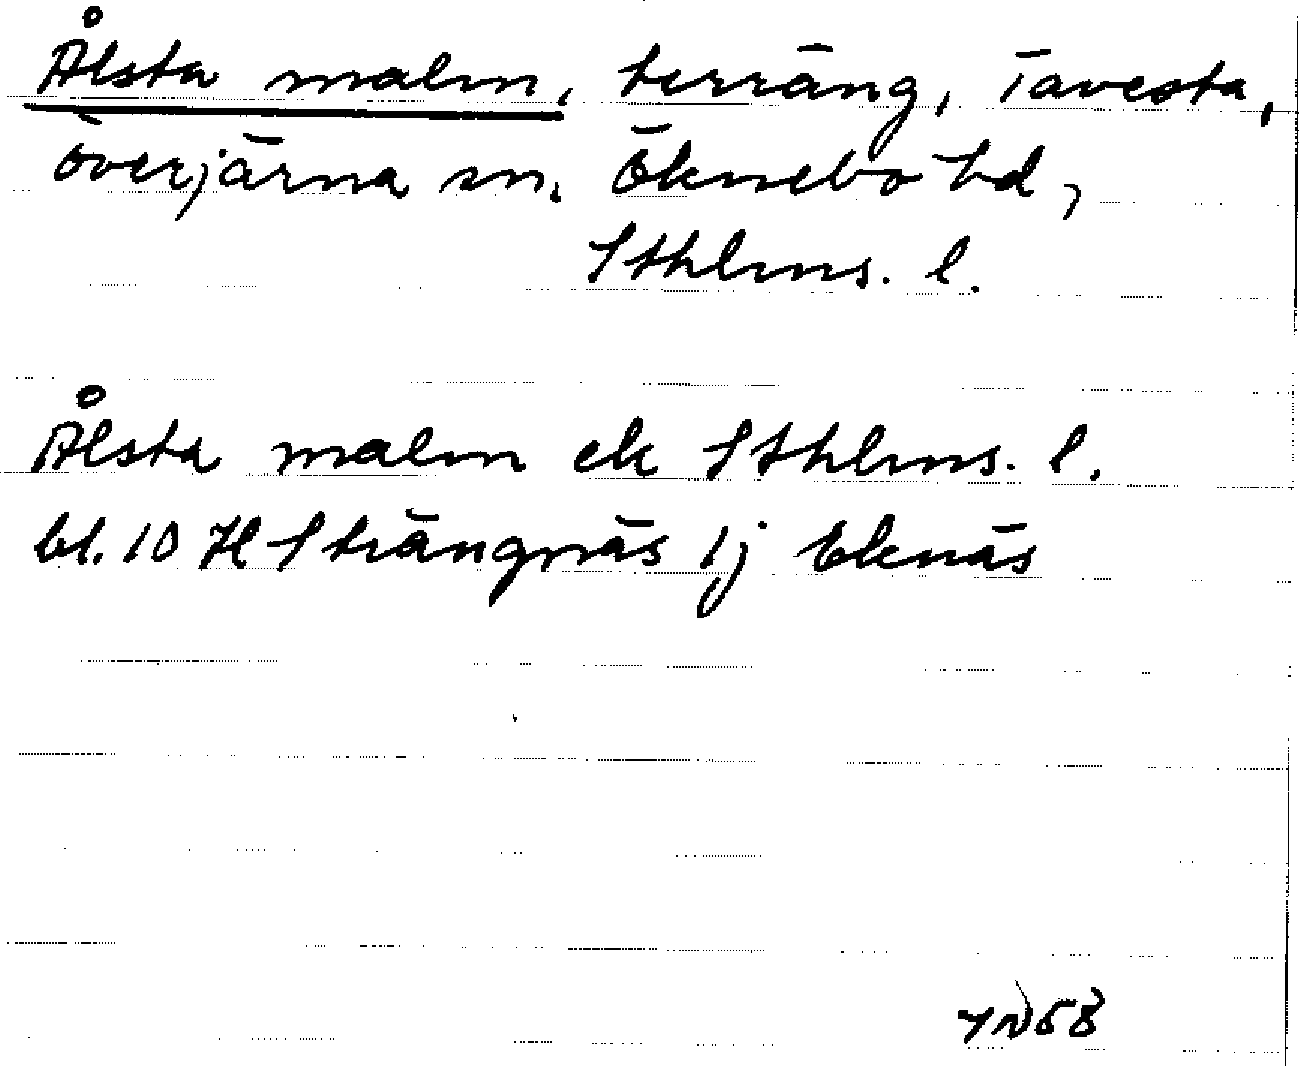 Ålsta malm, terräng, Tavesta,
överjärna sn. Öknebo hd,
Sthlms. l.
Ålsta malm ek Sthlms. l.
bl. 10 H Strängnäs 1j Eknäs